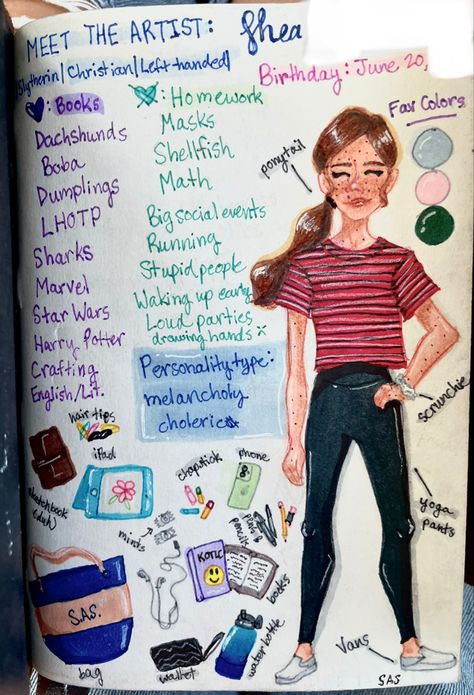 MEET THE ARTIST: Shea
Slytherin/Christian/Left handed
Birthday: June 20,
: Books
Dachshunds
Boba
Dumplings
LHOTP
Sharks
Marvel
Star Wars
Harry Potter
Crafting
English/Lit.
: Homework
Masks
Shellfish
Math
Big social events
Running
Stupid people
Waking up early
Loud parties
drawing hands
Personality type:
melancholy
choleric
Fav Colors
ponytail
scrunchie
yoga
pants
Vans
SAS
hair ties
iPad
sketchbook
(duh)
chapstick
phone
mints
pens &
pencils
KOTLC
books
S.A.S.
bag
wallet
water bottle